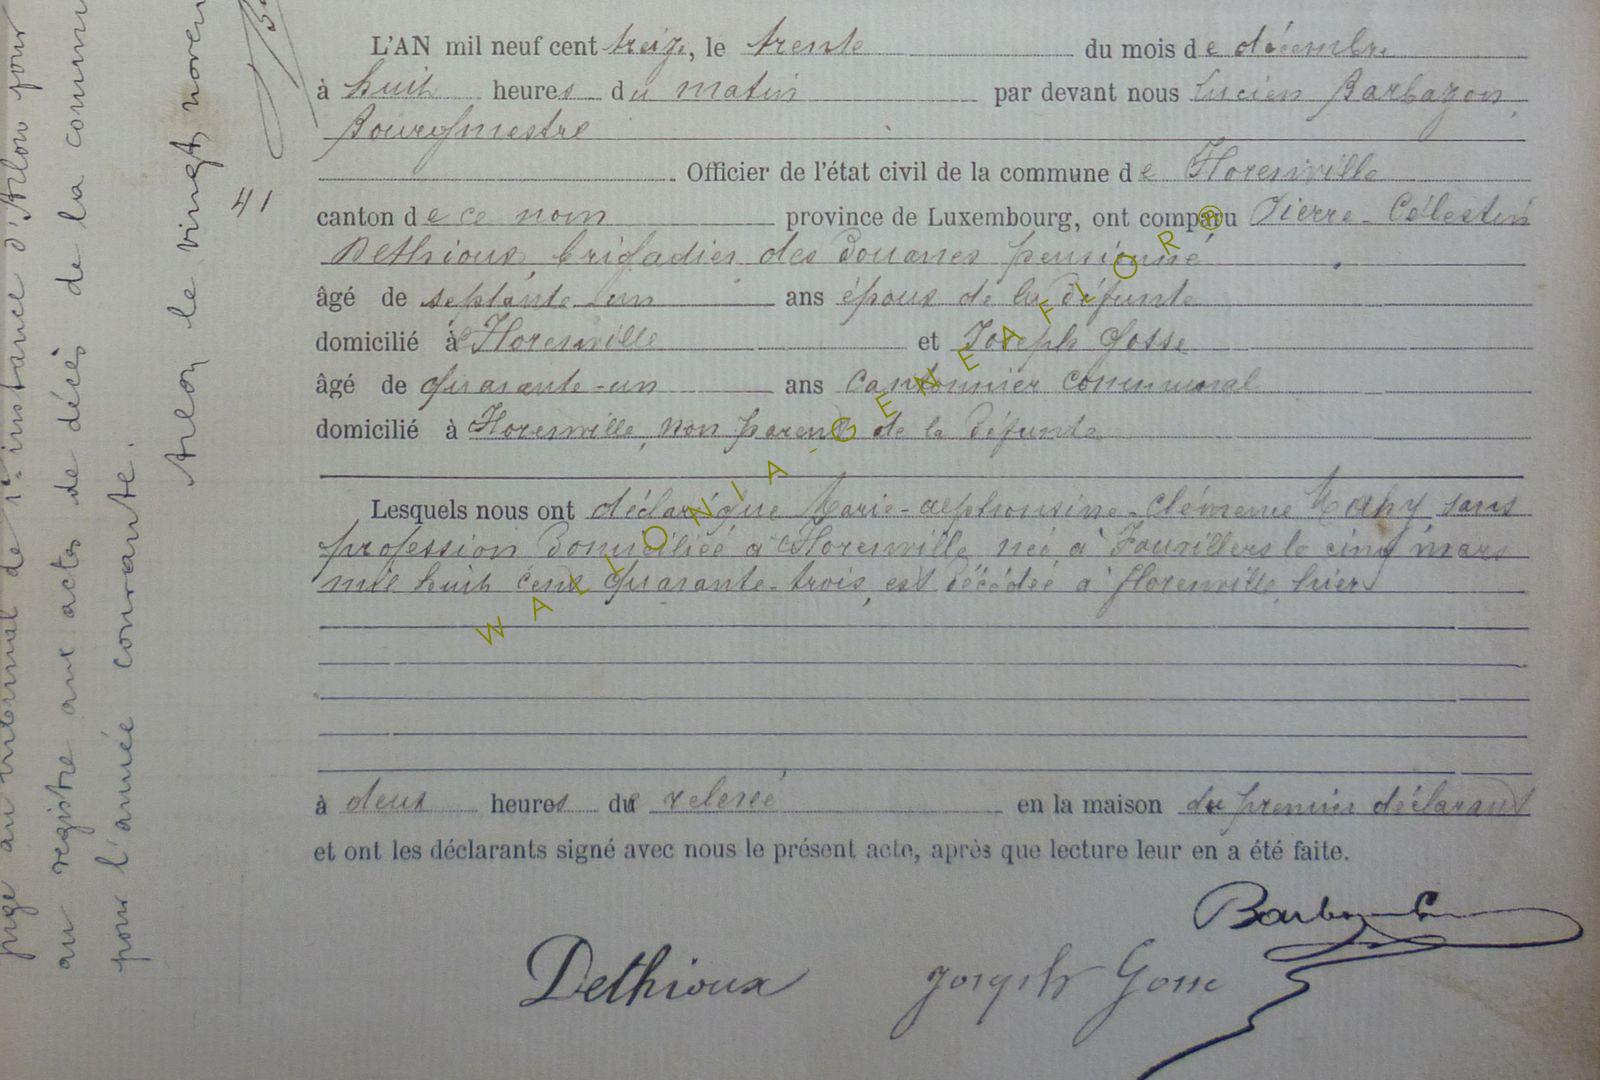 L'AN mil neuf cent treize, le trente du mois de décembre
à huit heures du matin par devant nous Lucien Barbazon,
Bourgmestre
Officier de l'état civil de la commune de Florenville
41
canton de ce nom province de Luxembourg, ont comparu Pierre-Célestin
Dethioux, brigadier des douanes pensionné
âgé de septante-un ans époux de la défunte
domicilié à Florenville et Joseph Gosse
âgé de quarante-un ans cantonnier communal
domicilié à Florenville, non parent de la défunte
Lesquels nous ont déclaré que Marie-Alphonsine-Clémence Mahy, sans
profession domiciliée à Florenville née à Fauvillers le cinq mars
mil huit cent quarante-trois, est décédée à Florenville, hier
à deux heures du relevée en la maison du premier déclarant
et ont les déclarants signé avec nous le présent acte, après que lecture leur en a été faite.
Barbazon
Dethioux Joseph Gosse
juge au tribunal de 1re instance d'Arlon pour
au registre aux actes de décès de la commune
pour l'année courante.
Arlon le vingt
WALLONIA-GENEAFLOR®